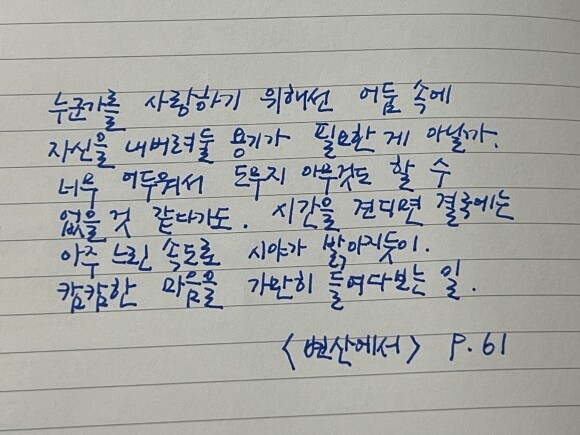 누군가를 사랑하기 위해선 어둠 속에
자신을 내버려둘 용기가 필요한 게 아닐까.
너무 어두워서 도무지 아무것도 할 수
없을 것 같다가도. 시간을 견디면 결국에는
아주 느린 속도로 시야가 밝아지듯이.
캄캄한 마음을 가만히 들여다보는 일.
<변산에서> P. 61